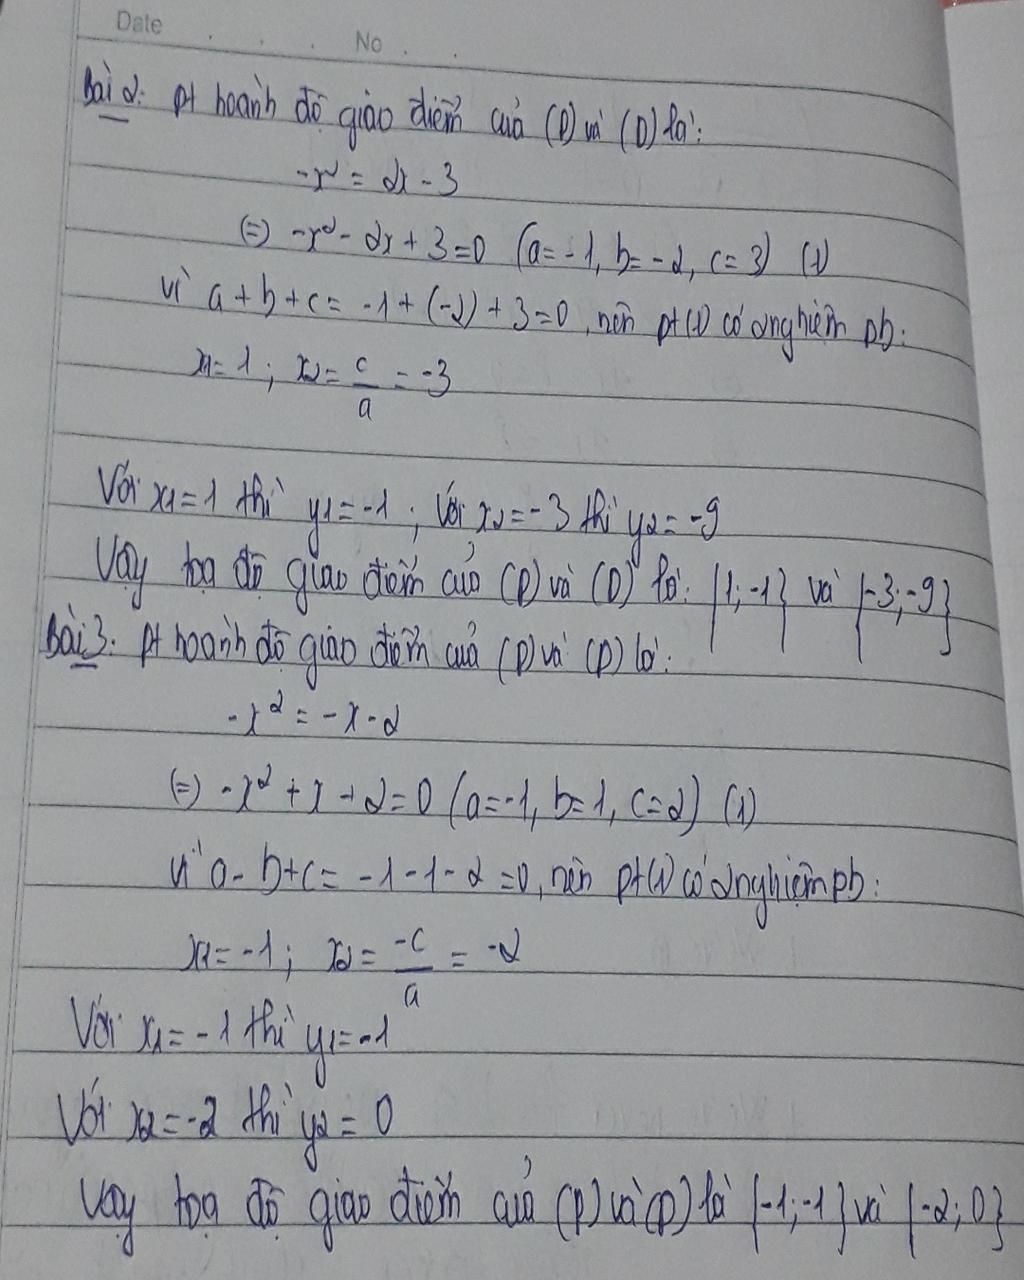 Date . . . No . .
Bài 2: Pt hoành độ giao điểm của (P) và (D) là:
-x² = 2x - 3
(=) -x² - 2x + 3 = 0 (a = -1, b = -2, c = 3) (1)
Vì a + b + c = -1 + (-2) + 3 = 0, nên pt (1) có 2 nghiệm pb:
x1 = 1 ; x2 = c/a = -3
Với x1 = 1 thì y1 = -1 ; Với x2 = -3 thì y2 = -9
Vậy toạ độ giao điểm của (P) và (D) là: {1; -1} và {-3; -9}
Bài 3: Pt hoành độ giao điểm của (P) và (D) là:
-x² = -x - 2
(=) -x² + x + 2 = 0 (a = -1, b = 1, c = 2) (1)
Vì a - b + c = -1 - 1 - 2 = 0, nên pt (1) có 2 nghiệm pb:
x1 = -1 ; x2 = -c/a = -2
Với x1 = -1 thì y1 = -1
Với x2 = -2 thì y2 = 0
Vậy toạ độ giao điểm của (P) và (D) là {-1; -1} và {-2; 0}